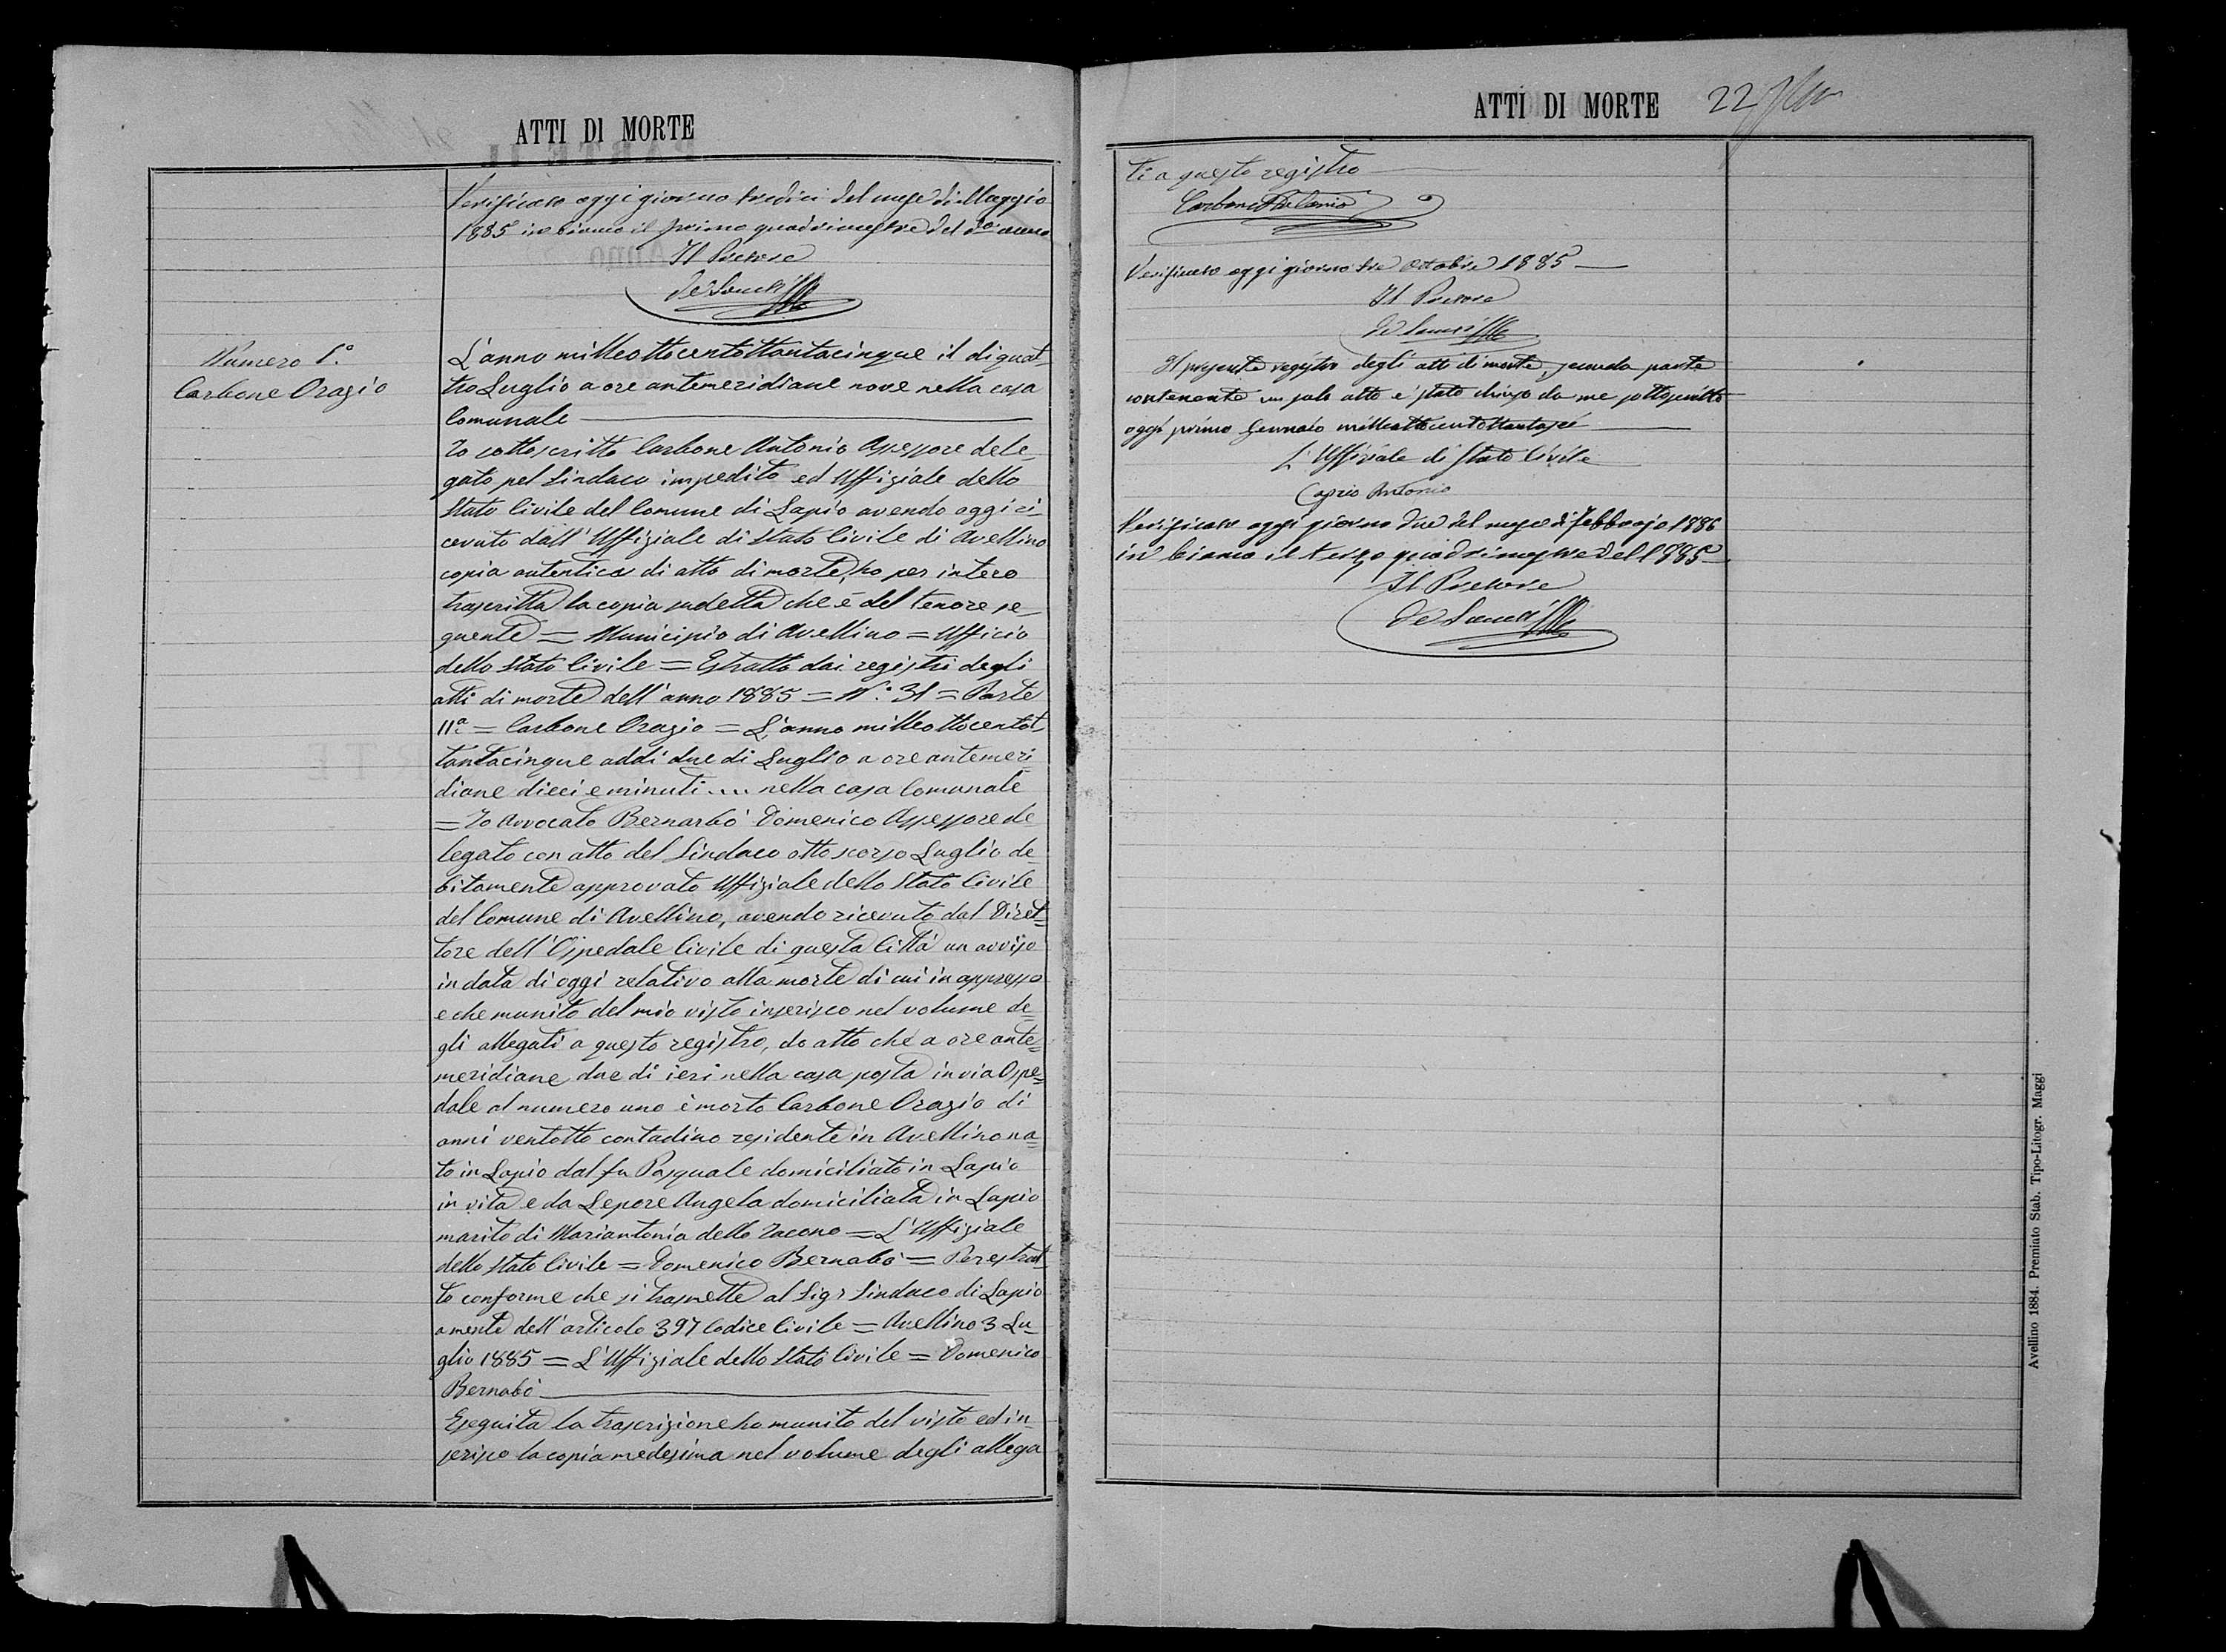 ATTI DI MORTE
Verificato oggi giorno tredici del mese di Maggio
1885 in bianco il primo quadrimestre del do anno
Il Pretore
de Sanctis
Numero 1.°
Carbone Orazio
L'anno milleottocentottantacinque il dì quat-
tro Luglio a ore antemeridiane nove nella casa
Comunale
Io sottoscritto Carbone Antonio Assessore dele-
gato pel Sindaco impedito ed Uffiziale dello
Stato Civile del Comune di Lapio avendo oggi ri-
cevuto dall'Uffiziale di Stato Civile di Avellino
copia autentica di atto di morte, ho per intero
trascritta la copia sudetta che è del tenore se-
guente = Municipio di Avellino = Ufficio
dello Stato Civile = Estratto dai registri degli
atti di morte dell'anno 1885 = N.° 31 = Parte
IIa = Carbone Orazio = L'anno milleottocentot-
tantacinque addì due di Luglio a ore antemeri
diane dieci e minuti .... nella casa Comunale
= Io Avvocato Bernarbò Domenico Assessore de
legato con atto del Sindaco otto scorso Luglio de-
bitamente approvato Uffiziale dello Stato Civile
del Comune di Avellino, avendo ricevuto dal Diret=
tore dell'Ospedale Civile di questa Città un avviso
in data di oggi relativo alla morte di cui in appresso
e che munito del mio visto inserisco nel volume de=
gli allegati a questo registro, do atto che a ore ante=
meridiane due di ieri nella casa posta in via Ospe=
dale al numero uno è morto Carbone Orazio di
anni ventotto contadino residente in Avellino na=
to in Lapio dal fu Pasquale domiciliato in Lapio
in vita e da Lepore Angela domiciliata in Lapio
marito di Mariantonia dello Iacono = L'Uffiziale
dello Stato Civile = Domenico Bernabò = Per estrat-
to conforme che si trasmette al Sigr Sindaco di Lapio
a mente dell'articolo 397 Codice Civile = Avellino 3 Lu-
glio 1885 = L'Uffiziale dello Stato Civile = Domenico
Bernabò
Eseguita la trascrizione ho munito del visto ed in-
serisco la copia medesima nel volume degli allega
ATTI DI MORTE 22
ti a questo registro
Carbone Antonio
Verificato oggi giorno tre Ottobre 1885
Il Pretore
de Sanctis
Il presente registro degli atti di morte, seconda parte
contenente un solo atto è stato chiuso da me sottoscritto
oggi primo Gennaio milleottocentottantasei
L'Uffiziale di Stato Civile
Caprio Antonio
Verificato oggi giorno due del mese di Febbrajo 1886
in bianco il terzo quadrimestre del 1885
Il Pretore
de Sanctis
Avellino 1884. Premiato Stab. Tipo-Litogr. Maggi